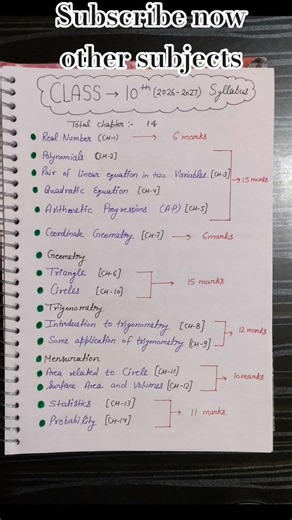 Subscribe now
other subjects
CLASS → 10th (2026-2027) Syllabus
Total chapter :- 14
Real Number (CH-1) → 6 marks
Polynomials [CH-2]
Pair of linear equation in two Variables. [CH-3]
Quadratic Equation [CH-4]
→ 15 marks
Arithmetic Progressions (A.P) [CH-5]
Coordinate Geometry [CH-7] → 6 marks
Geometry
Triangle [CH-6]
Circles [CH-10]
→ 15 marks
Trigonometry
Introduction to trigonometry [CH-8]
Some application of trigonometry [CH-9]
→ 12 marks
Mensuration
Area related to Circle [CH-11]
Surface Area and Volumes [CH-12]
→ 10 marks
Statistics [CH-13]
Probability [CH-14]
→ 11 marks